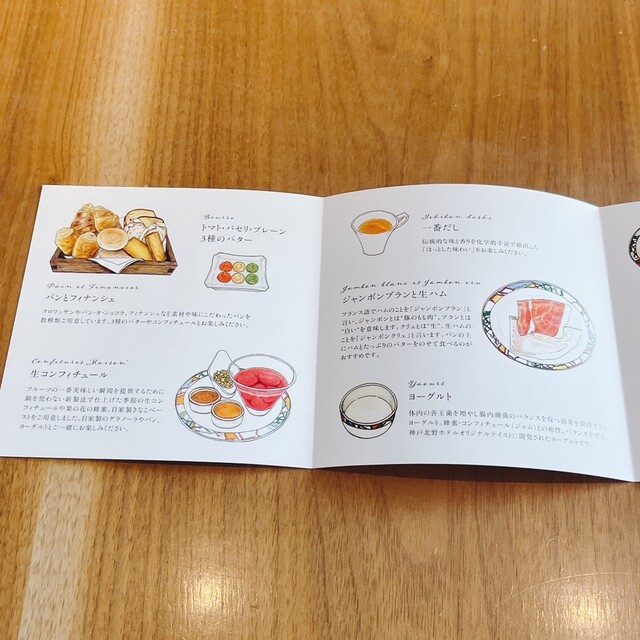 Beurre
トマト・パセリ・プレーン
3種のバター
Pain et Financier
パンとフィナンシェ
クロワッサンやパン・オ・ショコラ、フィナンシェなど素材や味にこだわったパンを
数種類ご用意しています。3種のバターやコンフィチュールとお楽しみください。
Confitures "Maison"
生コンフィチュール
フルーツの一番美味しい瞬間を提供するために
鍋を使わない新製法で仕上げた季節の生コン
フィチュールや菜の花の蜂蜜、自家製きなこペ
ーストをご用意しました。自家製のグラノーラやパン、
ヨーグルトとご一緒にお楽しみください。
Ichiban dashi
一番だし
伝統的な味と香りを化学的手法で抽出した
「ほっとした味わい」をお楽しみください。
Jambon blanc et Jambon cru
ジャンボンブランと生ハム
フランス語でハムのことを「ジャンボンブラン」と
言い、ジャンボンとは"豚のもも肉"、ブランとは
"白い"を意味します。クリュとは"生"、生ハムの
ことを「ジャンボンクリュ」と言います。パンの上
にハムとたっぷりのバターをのせて食べるのが
おすすめです。
Yaourt
ヨーグルト
体内の善玉菌を増やし腸内細菌のバランスを保つ効果を
ヨーグルト。蜂蜜・コンフィチュール(ジャム)との相性、バランスを
神戸北野ホテルオリジナルテイストに開発されたヨーグルトです。